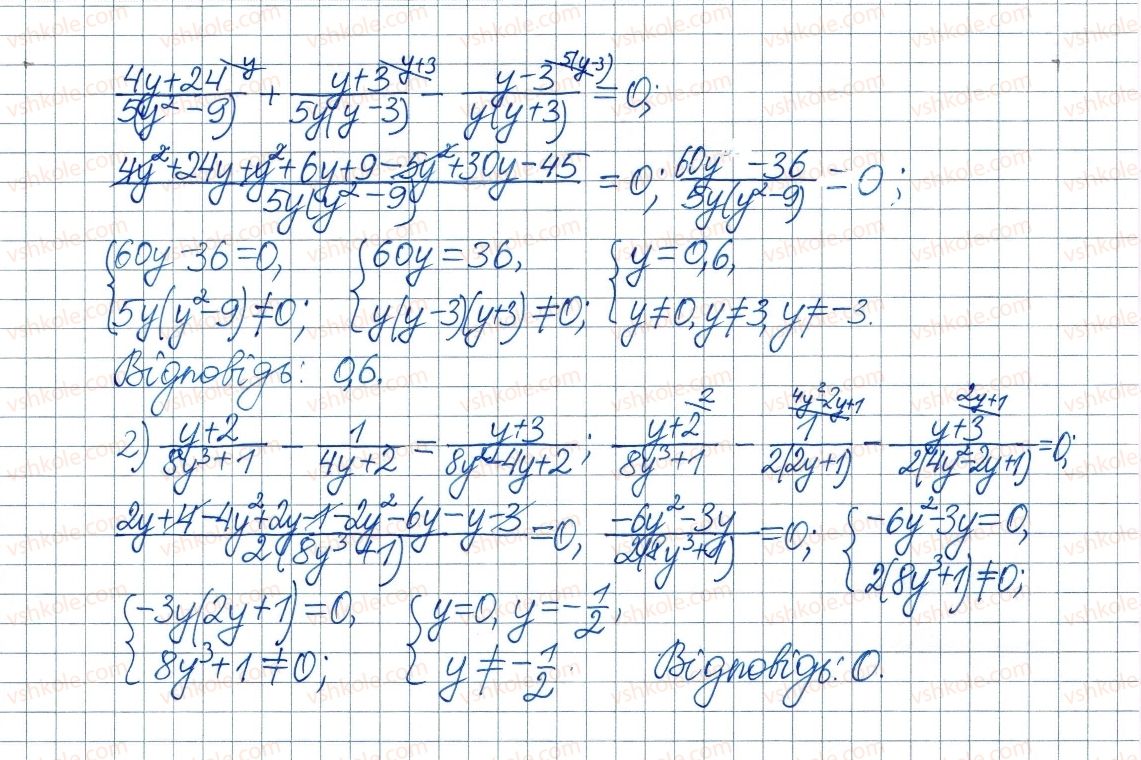 (4y+24)/(5(y²−9)) ^y + (y+3)/(5y(y−3)) ^(y+3) − (y−3)/(y(y+3)) ^(5(y−3)) = 0;
(4y²+24y+y²+6y+9−5y²+30y−45)/(5y(y²−9)) = 0; (60y −36)/(5y(y²−9)) = 0;
{60y−36=0, {60y=36, {y=0,6,
5y(y²−9)≠0; y(y−3)(y+3)≠0; y≠0, y≠3, y≠−3.
Відповідь: 0,6.
2) (y+2)/(8y³+1) − 1/(4y+2) = (y+3)/(8y²−4y+2); (y+2)/(8y³+1) ^2 − 1/(2(2y+1)) ^(4y²−2y+1) − (y+3)/(2(4y²−2y+1)) ^(2y+1) = 0;
(2y+4−4y²+2y−1−2y²−6y−y−3)/(2(8y³+1)) = 0, (−6y²−3y)/(2(8y³+1)) = 0; {−6y²−3y=0,
2(8y³+1)≠0;
{−3y(2y+1)=0, {y=0, y=−1/2,
8y³+1≠0; y≠−1/2. Відповідь: 0.